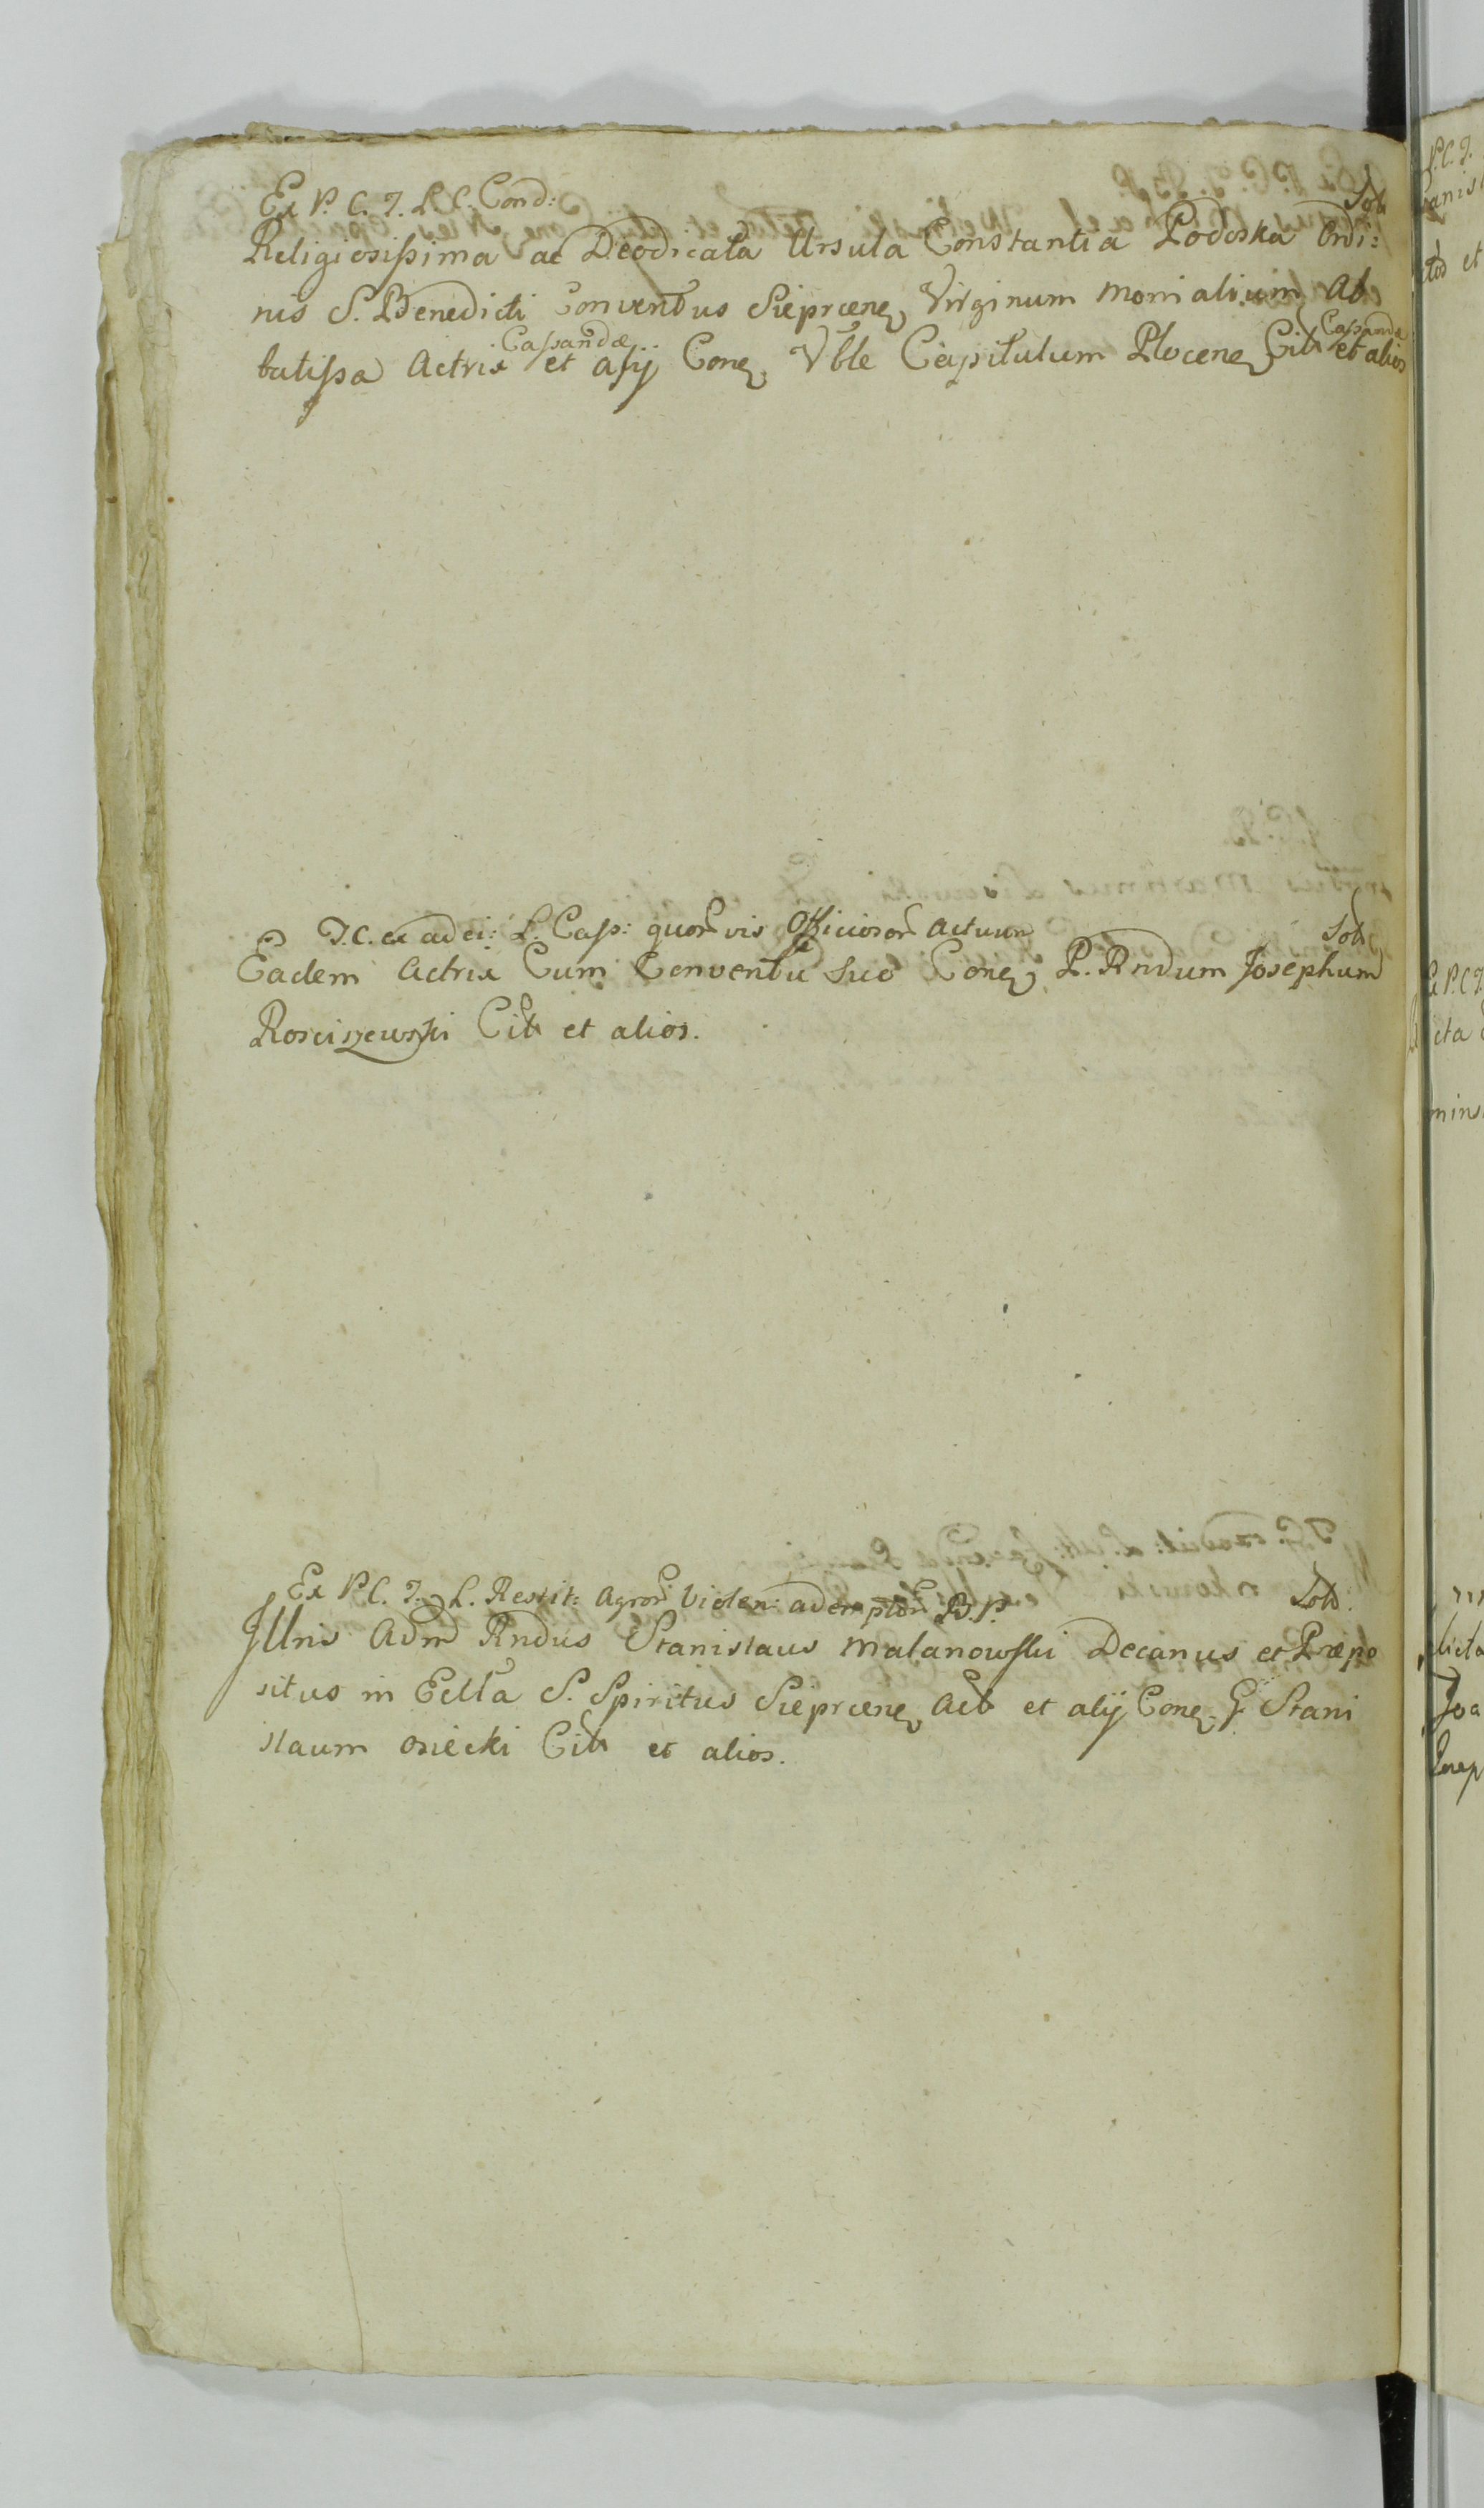 Ex P. C. T. L. C. Cond: Solt
Religiosissima ac Deodicata Ursula Constantia Podoska Ordi:
nis S. Benedicti Conventus Sieprcen Virginum Monialium Ab
Cassandæ Cassandæ
batissa Actrix et alij Con Vble Capitulum Plocen Cit et alios
T. C. ex ad ei: L. Cass: quorvis Officiosor Actuum Solt
Eadem Actrix Cum Conventu suo Con P. Rndum Josephum
Rosciszewski Cit et alios.
Ex P. C. T. L. Restit: agror violen: ademptor B. P. Solt.
Illris Adm Rndus Stanislaus Malanowski Decanus et Præpo
situs in Eccla S. Spiritus Sieprcen Act et alij Con G Stani
slaum Osiecki Cit et alios.